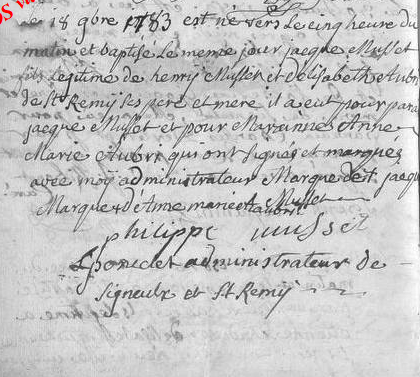 Le 18 9bre 1783 est né vers Le cinq heure du
matin et baptisé Le meme jour jaque Musset
fils Legitime de henry Musset et d'elisabeth Aubri
de St Remy ses pere et mere il a eut pour para
jaque Musset et pour Maraine Anne
Marie Aubri qui ont signés et marquez
avec moy administrateur Marque de + jaque
Marque + de Anne marie Aubri Musset
philippe musset
administrateur de
Signeulx et St Remy